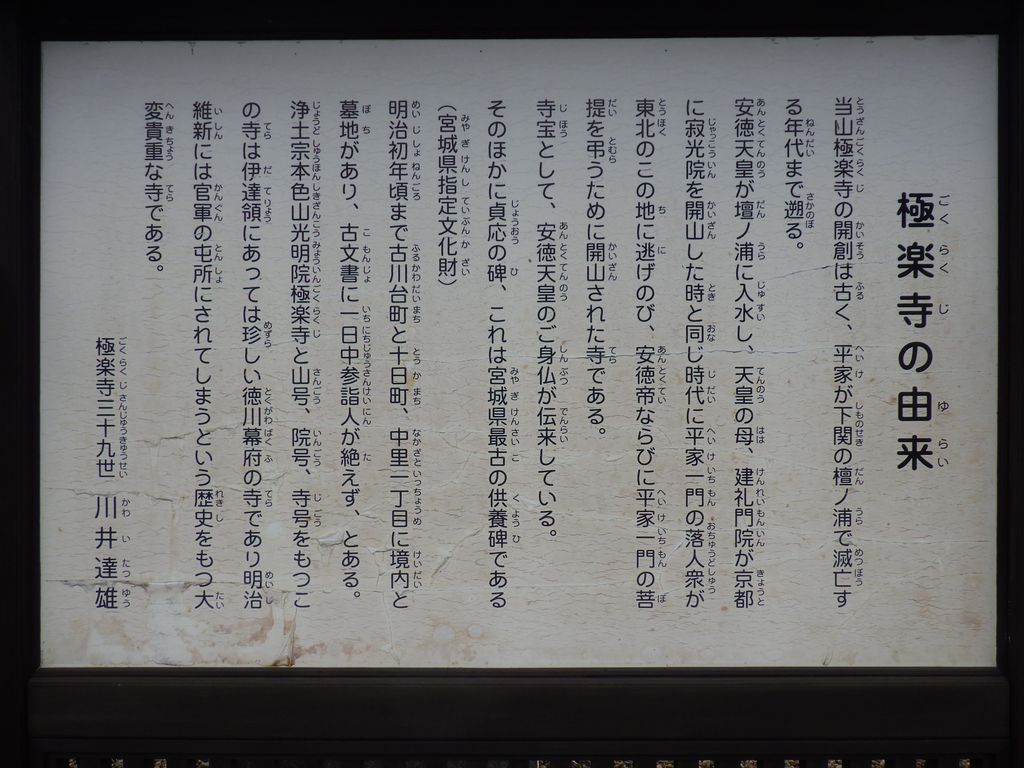 極楽寺の由来
当山極楽寺の開創は古く、平家が下関の檀ノ浦で滅亡す
る年代まで遡る。
安徳天皇が壇ノ浦に入水し、天皇の母、建礼門院が京都
に寂光院を開山した時と同じ時代に平家一門の落人衆が
東北のこの地に逃げのび、安徳帝ならびに平家一門の菩
提を弔うために開山された寺である。
寺宝として、安徳天皇のご身仏が伝来している。
そのほかに貞応の碑、これは宮城県最古の供養碑である
(宮城県指定文化財)
明治初年頃まで古川台町と十日町、中里一丁目に境内と
墓地があり、古文書に一日中参詣人が絶えず、とある。
浄土宗本色山光明院極楽寺と山号、院号、寺号をもつこ
の寺は伊達領にあっては珍しい徳川幕府の寺であり明治
維新には官軍の屯所にされてしまうという歴史をもつ大
変貴重な寺である。
極楽寺三十九世 川井達雄